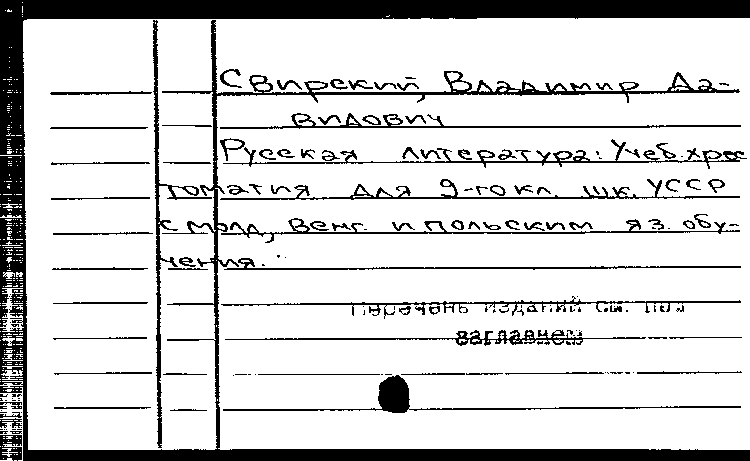 Свирский, Владимир Да-
видович
Русская литература: Учеб. хрес
томатия для 9-го кл. шк. УССР
с молд., венг. и польским яз. обу-
чения.
Перечень изданий см. под
заглавием